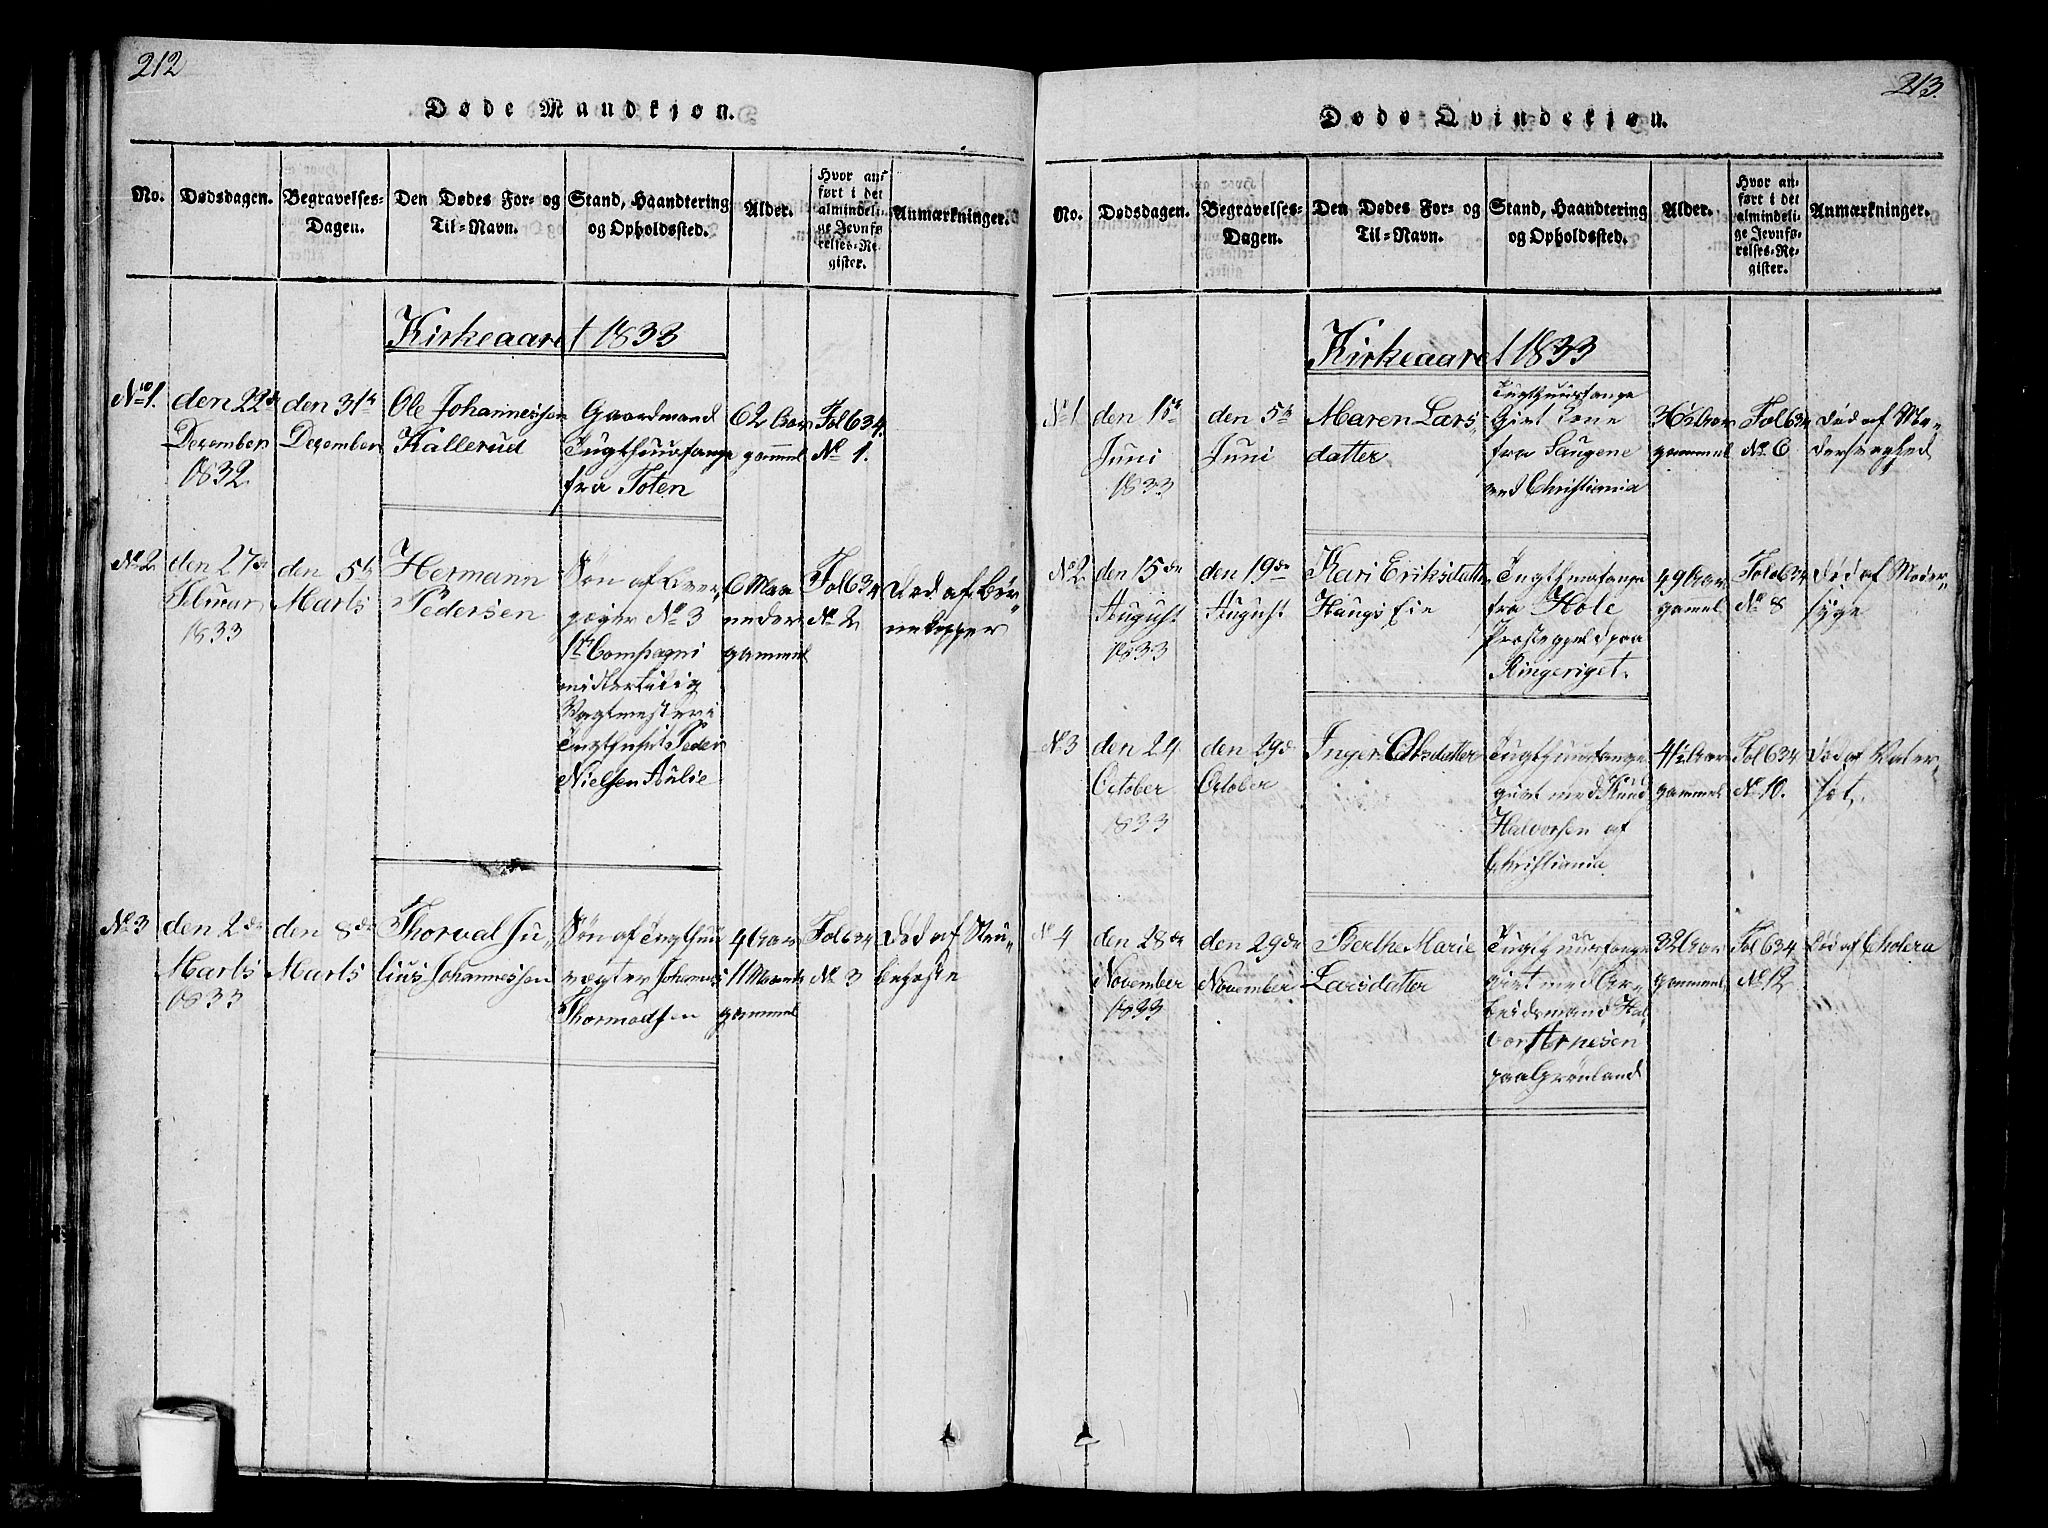 212
Døde Mandkjøn.
No.
Dødsdagen.
Begravelses-
Dagen.
Den Dødes For- og
Til-Navn.
Stand, Haandtering
og Opholdssted.
Alder.
Hvor an-
ført i det
almindeli-
ge Jevnfø-
relses-Re-
gister.
Anmærkninger.
Kirkeaaret 1833
No 1.
den 22de
December
1832
den 31te
December
Ole Johannessen
Kallerud
Gaardmand
Tugthuusfange
fra Toten
62 Aar
gammel
Fol 634.
No 1.
No 2
den 27de
Februar
1833
den 5te
Marts
Hermann
Pedersen
Søn af
No 3
1ste Compagni
midlertidig
Vagtmester i
Tugthuset Peder
Nielsen Aulie
6 Maa
neder
gammel
Fol 634
No 2
Død af Bør-
nekopper
No 3
den 2den
Marts
1833
den 8de
Marts
Thorval Ju-
lius Johannessen
Søn af Tugthuu
vægter Johannes
Thormodsen
4 Aar
11 Maaneder
gammel
Fol 634
No 3
Død af Stru-
behoste
213.
Døde Qvindekjøn.
No.
Dødsdagen.
Begravelses-
Dagen.
Den Dødes For- og
Til-Navn.
Stand, Haandtering
og Opholdssted.
Alder.
Hvor an-
ført i det
almindeli-
ge Jevnfø-
relses-Re-
gister.
Anmærkninger.
Kirkeaaret 1833
No 1
den 1ste
Juni
1833
den 5te
Juni
Maren Lars-
datter
Tugthuusfange
Givt Kone
fra Saugene
ved Christiania
36½ Aar
gammel
Fol 634
No 6
Død af Mo-
dersvaghed
No 2
den 15de
August
1833
den 19de
August
Kari Eriksdatter
Haugs Eie
Tugthuusfange
fra Hole
Præstegjeld paa
Ringeriget.
49 Aar
gamel
Fol 634
No 8
Død af Moder-
syge
No 3
den 24
October
1833
den 29de
October
Inger Olsdatter
Tugthuusfange
givt med Knud
Halvorsen af
Christiania
41½ Aar
gammel
Fol 634
No 10.
Død af Vater-
sot.
No 4
den 28de
November
1833
den 29de
November
Berthe Marie
Larsdatter
Tugthuusfange
givt med Ar-
beidsmand Hal-
vor Arnesen
paa Grønland
32 Aar
gammel
Fol 634
No 12
Død af Cholera